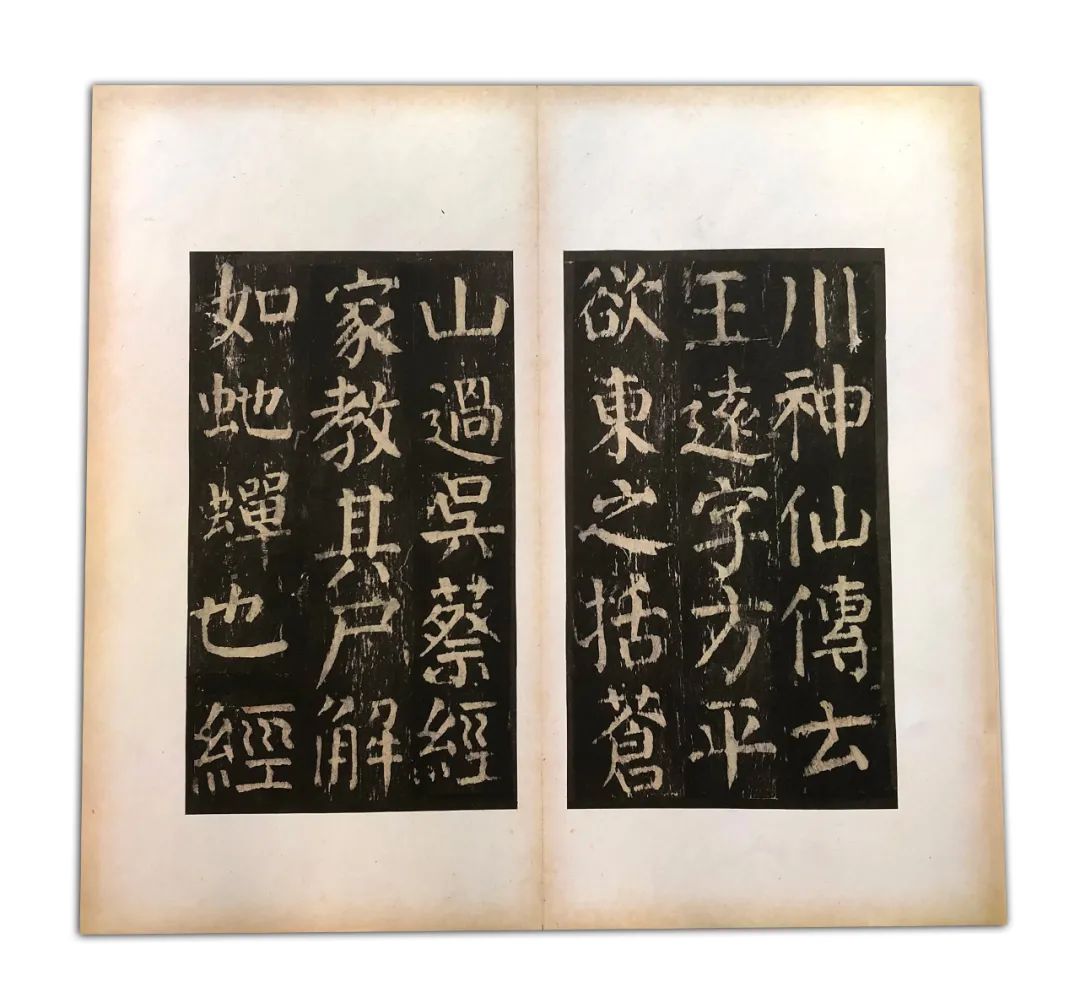 川神仙傳云
王遠字方平
欲東之括蒼
山過吳蔡經
家教其尸解
如虵蟬也經